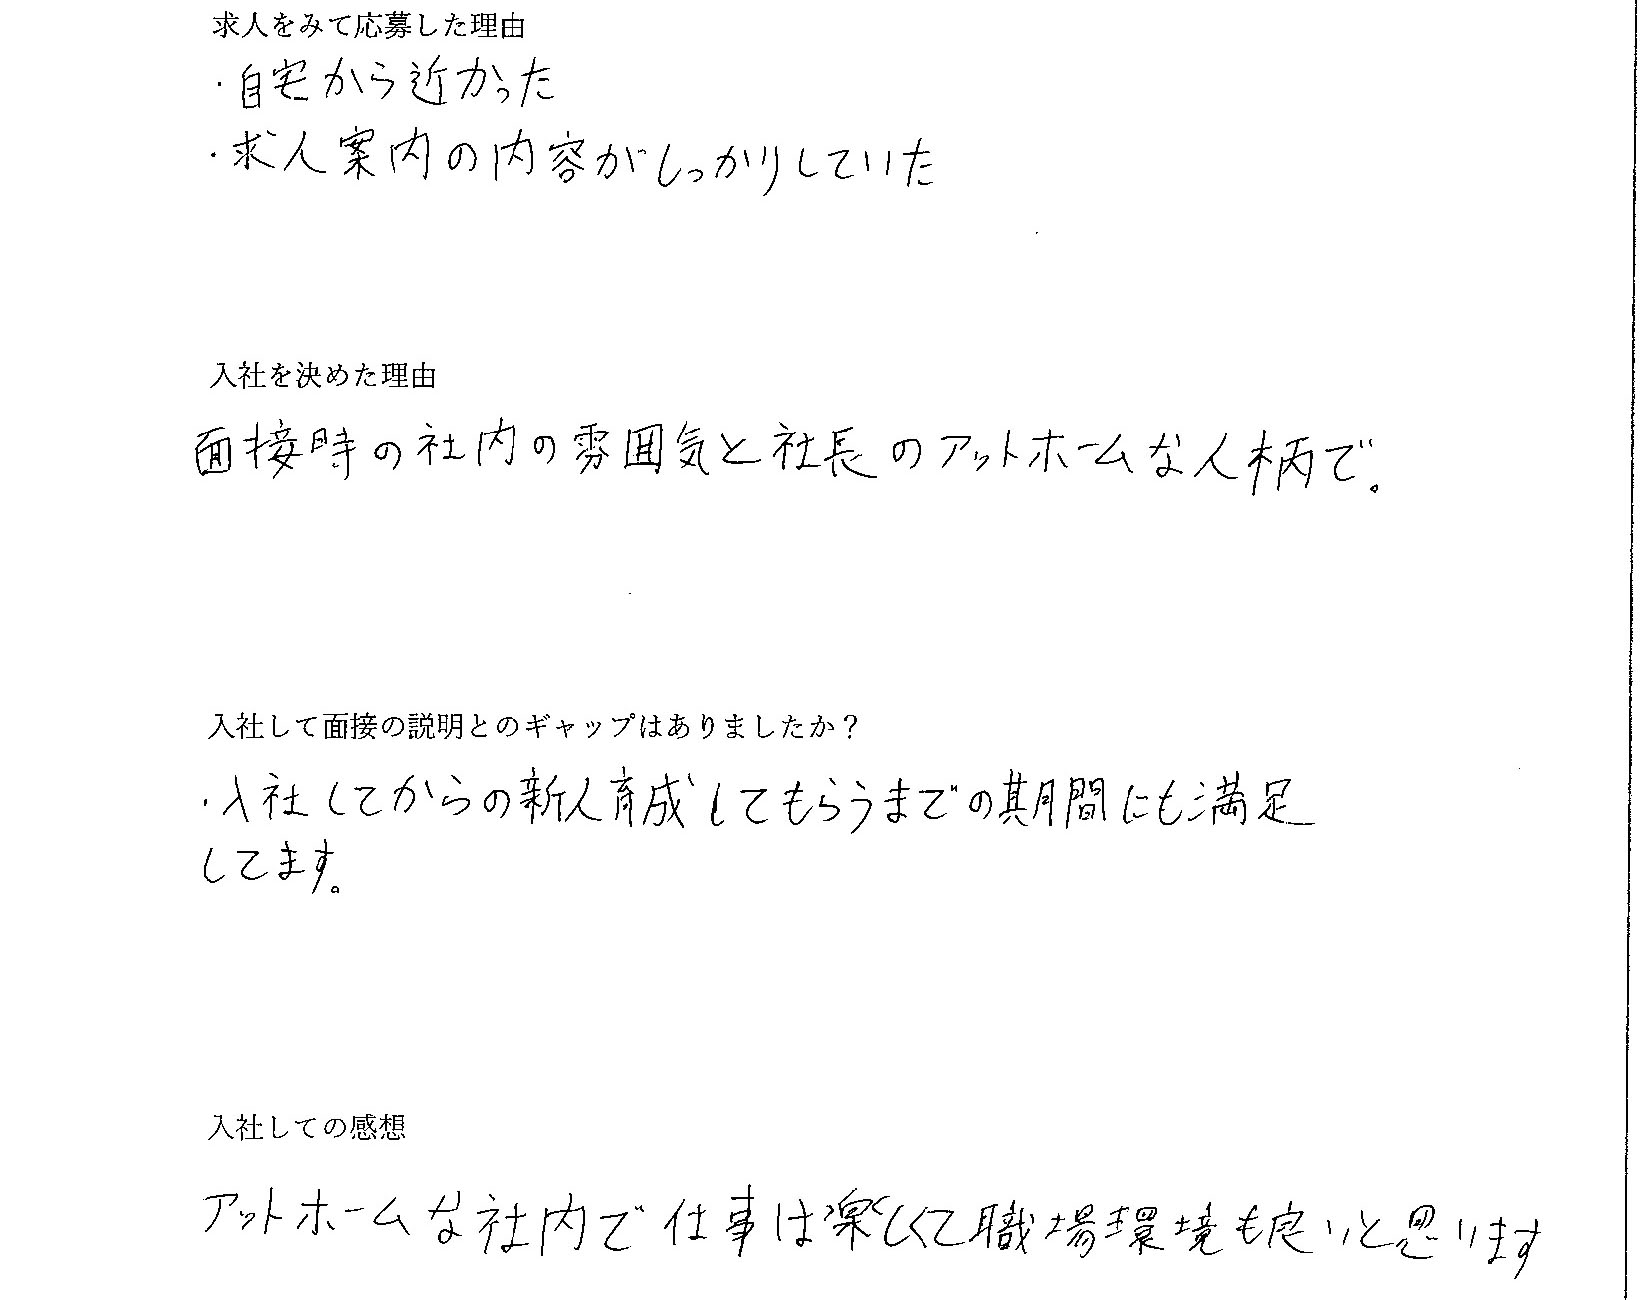 求人をみて応募した理由
・自宅から近かった
・求人案内の内容がしっかりしていた
入社を決めた理由
面接時の社内の雰囲気と社長のアットホームな人柄で。
入社して面接の説明とのギャップはありましたか?
・入社してからの新人育成してもらうまでの期間にも満足
してます。
入社しての感想
アットホームな社内で仕事は楽しくて職場環境も良いと思います